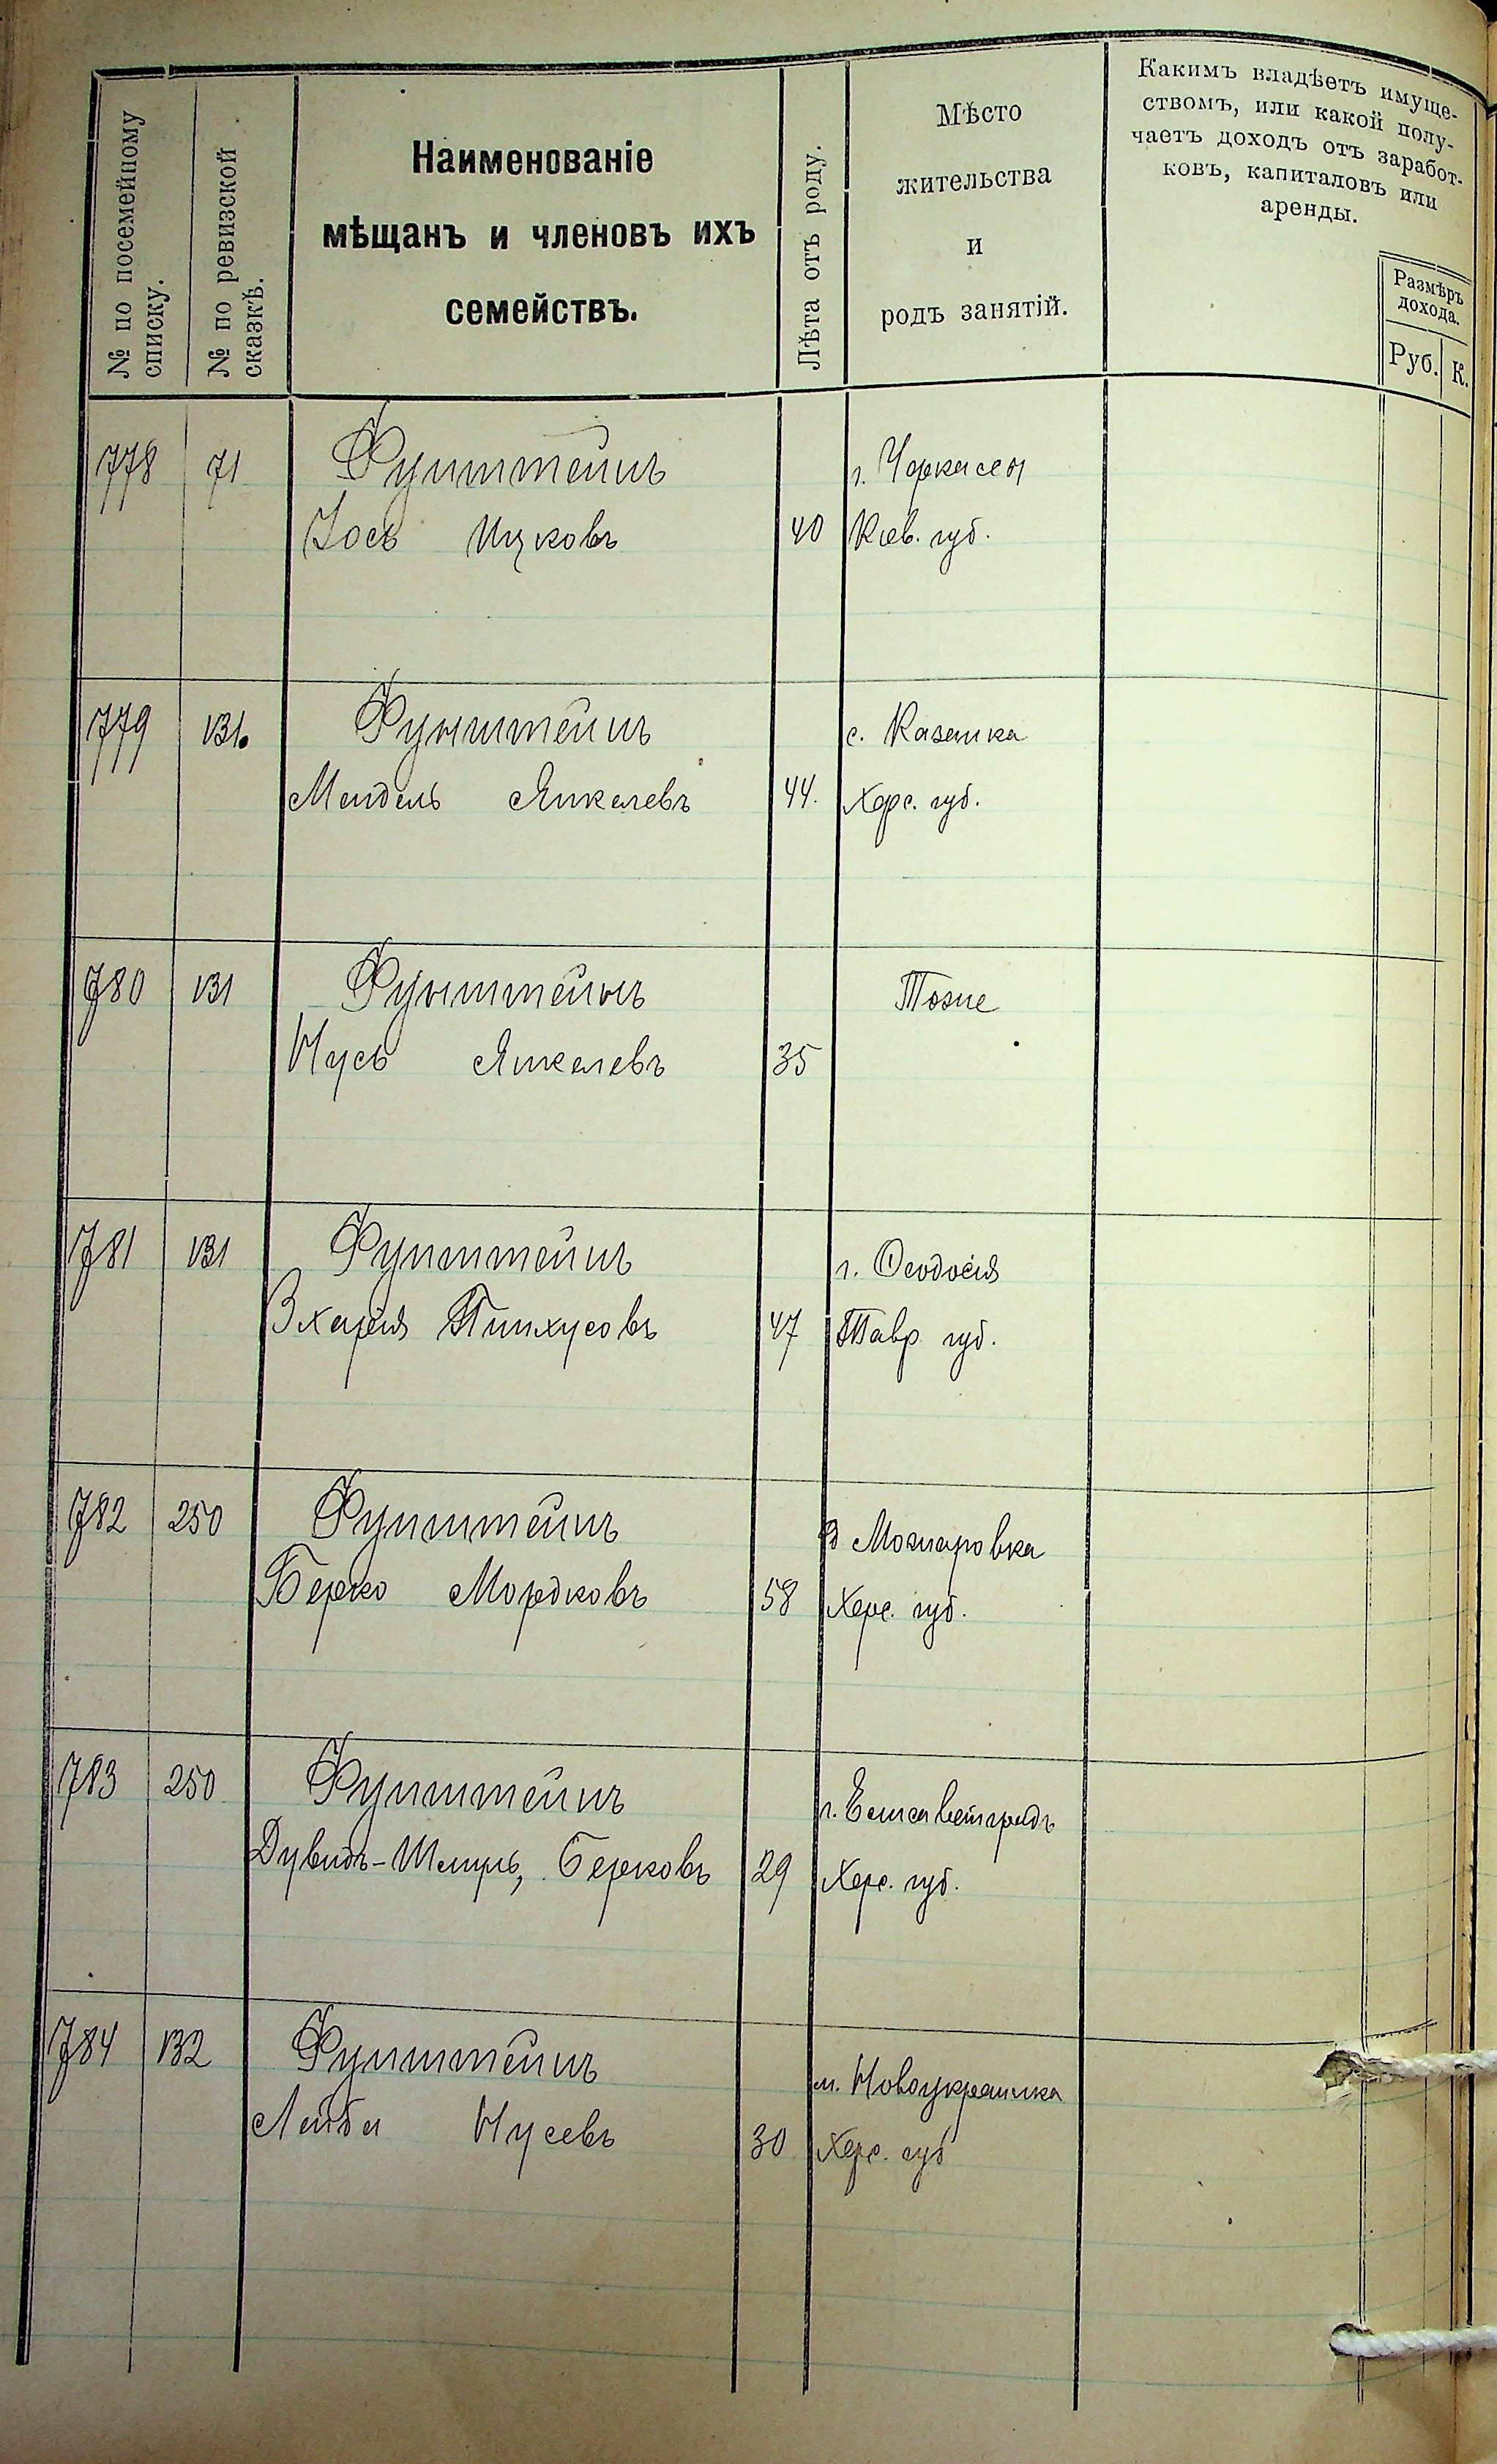 № по посемейному
списку.
№ по ревизской
сказкѣ.
Наименованіе
мѣщанъ и членовъ ихъ
семействъ.
Лѣта отъ роду.
Мѣсто
жительства
и
родъ занятій.
Какимъ владѣетъ имуще-
ствомъ, или какой полу-
чаетъ доходъ отъ заработ-
ковъ, капиталовъ или
аренды.
Размѣръ
дохода.
Руб. К.
778 71 Функштейнъ г. Черкассы
Іось Ицковъ 40 Кіев. губ.
779 131. Функштейнъ с. Казанка
Мендель Янкелевъ 44. Херс. губ.
780 131 Функштейнъ Тоже
Нусь Янкелевъ 35
781 131 Функштейнъ г. Ѳеодосія
Зхарія Пинхусовъ 47 Тавр. губ.
782 250 Функштейнъ
Берко Мордковъ 58 Херс. губ.
783 250 Функштейнъ г. Елисаветградъ
Дувидъ-Шмуль, Берковъ 29 Херс. губ.
784 132 Функштейнъ м. Новоукраинка
Лейба Нусевъ 30 Херс. губ